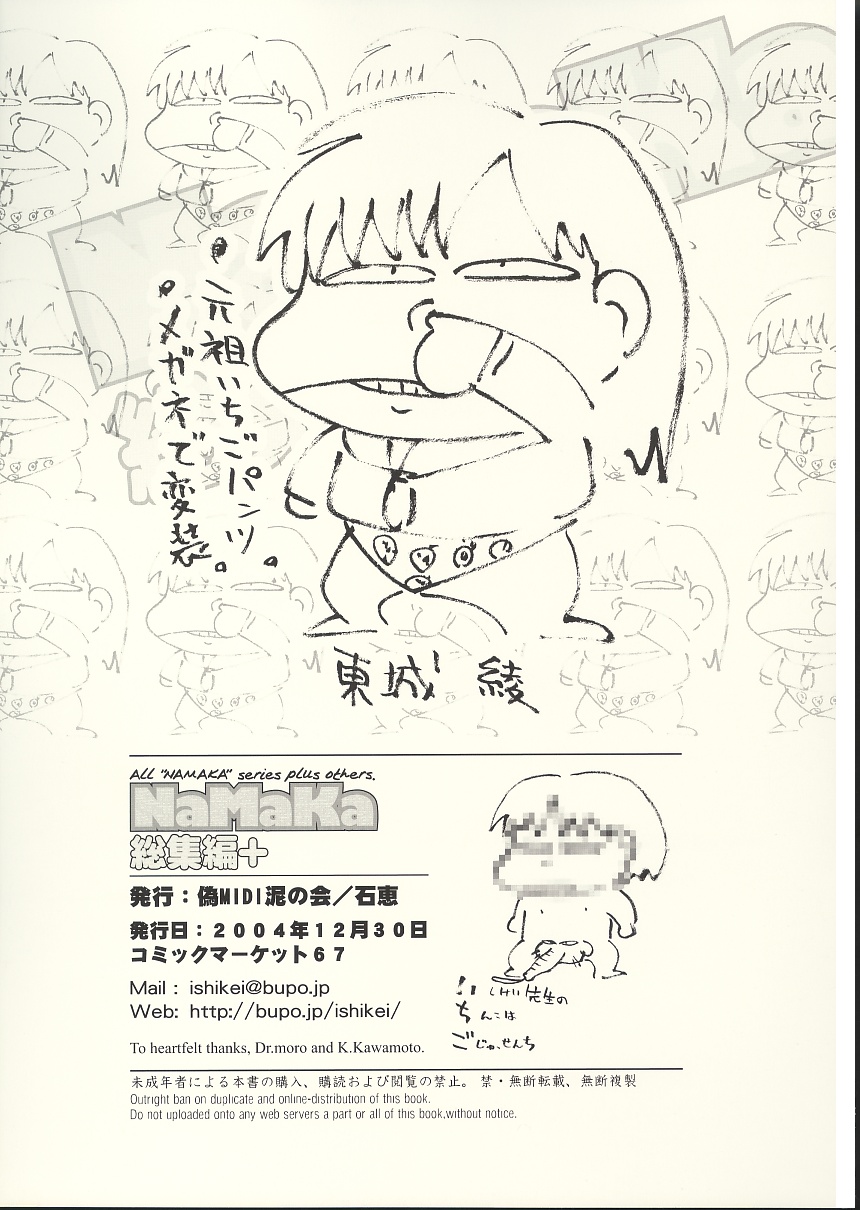 ・元祖いちごパンツ。
。メガネで変装。
東城 綾
ALL "NAMAKA" series plus others.
NaMaKa
総集編+
発行：偽MIDI泥の会／石恵
発行日：２００４年１２月３０日
コミックマーケット６７
Mail : ishikei@bupo.jp
Web: http://bupo.jp/ishikei/
To heartfelt thanks, Dr.moro and K.Kawamoto.
いしけい先生の
ちんこは
ごじゅっせんち
未成年者による本書の購入、購読および閲覧の禁止。 禁・無断転載、無断複製
Outright ban on duplicate and online-distribution of this book.
Do not uploaded onto any web servers a part or all of this book,without notice.